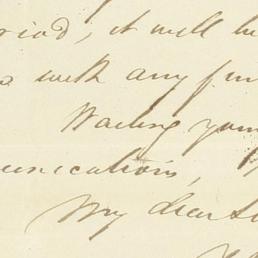 riod, it will
with any
Waiting your
unication,
My dear